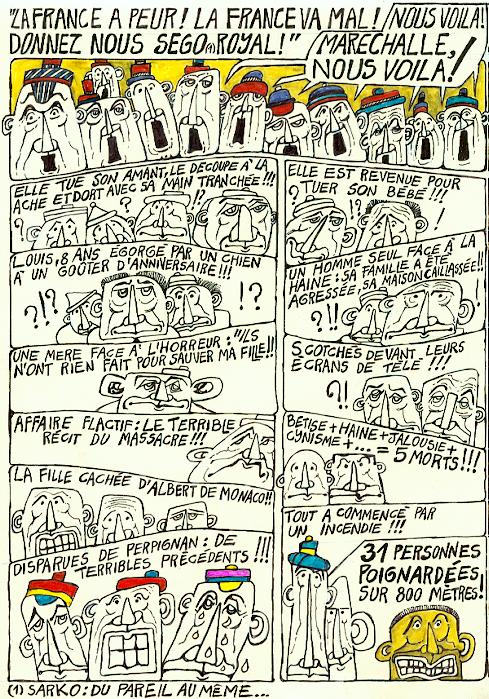 "LA FRANCE A PEUR! LA FRANCE VA MAL!
DONNEZ NOUS SEGO(1) ROYAL!"
NOUS VOILA!
MARECHALLE,
NOUS VOILA!
ELLE TUE SON AMANT, LE DECOUPE A LA
ACHE ET DORT AVEC SA MAIN TRANCHÉE!!!
? ? ? !?
ELLE EST REVENUE POUR
TUER SON BEBE!!!
!? ? !
LOUIS, 8 ANS EGORGÉ PAR UN CHIEN
A UN GOÛTER D'ANNIVERSAIRE!!!
?!? !?
UN HOMME SEUL FACE A LA
HAINE: SA FAMILLE A ETE
AGRESSÉE, SA MAISON CAILLASSÉE!!
?!!
UNE MERE FACE A L'HORREUR: "ILS
N'ONT RIEN FAIT POUR SAUVER MA FILLE!!
SCOTCHES DEVANT LEURS
ECRANS DE TELE!!!
?!
AFFAIRE FLACTIF: LE TERRIBLE
RÉCIT DU MASSACRE!!!
BETISE + HAINE + JALOUSIE +
CYNISME + ... = 5 MORTS!!!
LA FILLE CACHÉE D'ALBERT DE MONACO!!
DISPARUES DE PERPIGNAN: DE
TERRIBLES PRÉCÉDENTS!!!
TOUT A COMMENCE PAR
UN INCENDIE!!!
31 PERSONNES
POIGNARDÉES
SUR 800 MÈTRES!
(1) SARKO: DU PAREIL AU MÊME...